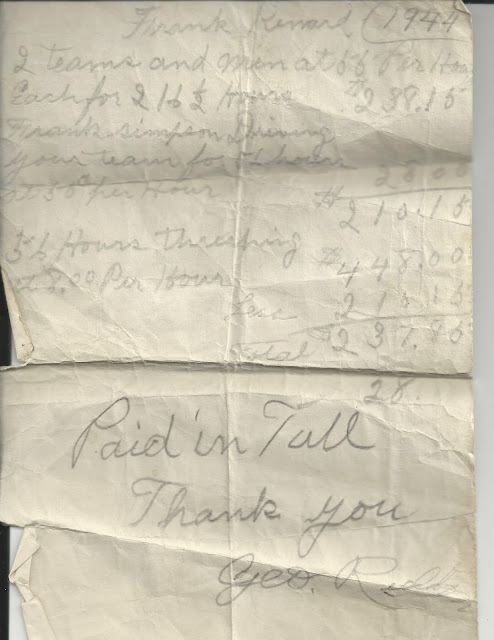 Frank Renard (1944
2 teams and men at 55 Per Hour
Each for 216½ Hours $238.15
Frank Simpson Driving
your team for 56 hours
at 50¢ per Hour 28.00
$210.15
56 Hours Threshing $448.00
at 8.00 Per Hour
Less 210.15
Total $237.85
28.
Paid in Full
Thank you
Geo.